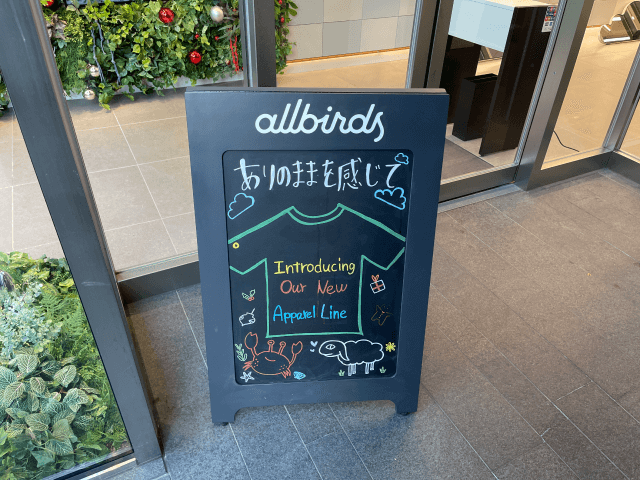 allbirds
ありのままを感じて
Introducing
Our New
Apparel Line